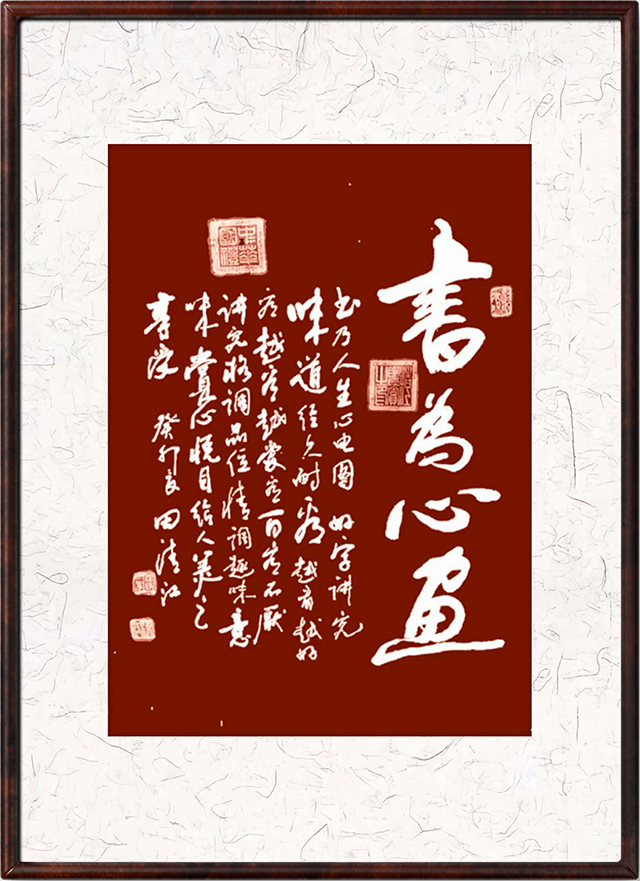 書為心画
书乃人生心电图好字讲究
味道经久耐看越看越好
看越看越爱看百看不厭
讲究格调品位情调趣味意
味赏心悦目给人美之
享受 癸卯 田清江